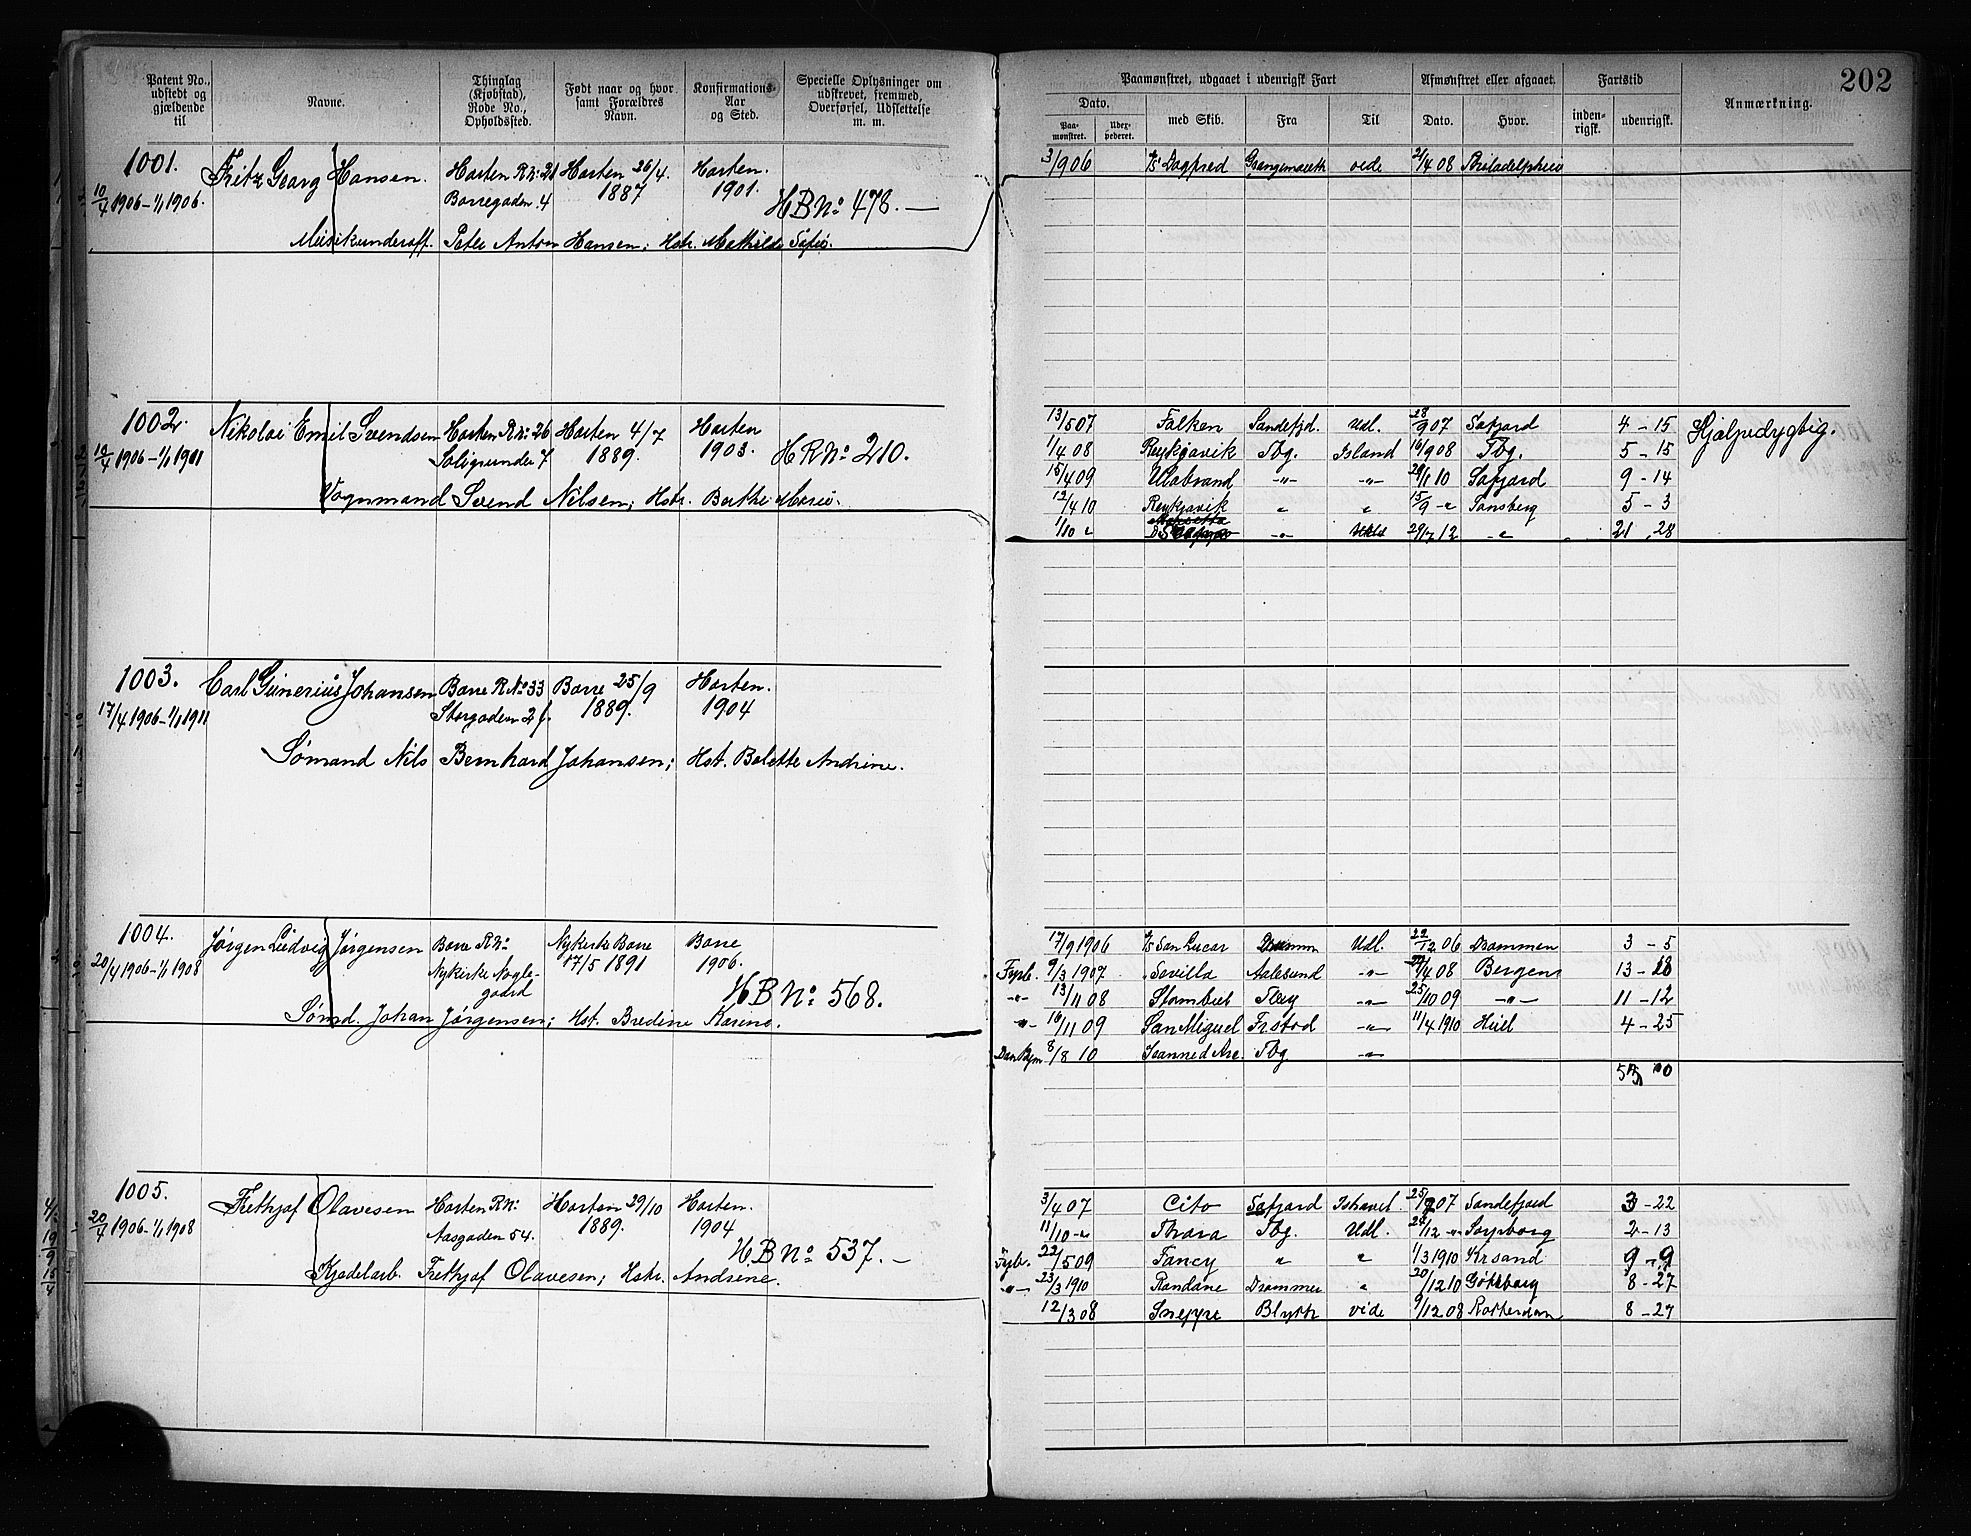 Patent No., udstedt og gjældende til
Navne.
Thinglag (Kjøbstad), Rode No., Opholdssted.
Født naar og hvor samt Forældres Navn.
Konfirmations- Aar og Sted.
Specielle Oplysninger om udskrevet, fremmed, Overførsel, Udslettelse m. m.
Paamønstret, udgaaet i udenrigsk Fart
Afmønstret eller afgaaet.
Fartstid
Anmærkning.
202
Dato.
Paa- mønstret.
Udex- pederet.
med Skib.
Fra
Til
Dato.
Hvor.
inden- rigsk.
udenrigsk.
1001. Fritz Georg Hansen. Horten R.No: 21 Horten 26/4. Horten.
10/4 1906 - 1/1 1906. Borregaden. 4 1887 1901. HB No: 478. —
Musikunderoff. Peter Anton Hansen; Hstr. Mathilde Sofie.
3/9 06 Dagfred vide 2/4 08 Philadelphia
1002. Nikolai Emil Svendsen Horten R.No: 26 Horten 4/7 Horten
10/4 1906 - 1/1 1911 1889. 1903. HR No: 210.
Vognmand Svend Nilsen; Hstr. Berthe Marie.
13/5 07 Falken Sandefjd. Udl. 28/9 07 Safjord 4 - 15 Hjælpedygtig.
1/4 08 Reykjavik Tbg. Island 16/9 08 Tbg. 5 - 15
15/4 09 Ulabrand -"- -"- 10 Safjord 9 - 14
12/4 10 Reykjavik " " 15/9 -"- Tønsberg 5 - 3
1/10 " -"- 12 -"- 21 . 28
1003. Carl Gunerius Johansen Borre R No 33 Borre 25/9 Horten.
17/4 1906 - 1/1 1911 Storgaden 2 f. 1889. 1904
Sømand Nils Bernhard Johansen; Hst. Bolette Andrine.
1004. Jørgen Ludvig Jørgensen Borre R.No: Nykirke Borre Borre
20/4 1906 - 1/1 1908 Nykirke Nogle- 17/5 1891 1906.
gaard HB No: 568.
Sømd. Johan Jørgensen; Hst. Bredine Karine.
17/9 1906 San Lucar Drammen Udl. 22/12 06 Drammen 3 - 5
9/3 1907. Sevilla Aalesund -"- /4 08 Bergen 13 - 18
-"- 13/11 08 Stambul -"- 25/10 09 -"- 11 - 12
-"- 16/11 09 San Miguel Frstad -"- 11/4 1910 Hull 4 - 25
8/8 10 Jeanne d'Arc. Tbg -"-
1005. Frithjof Olavesen Horten R.No: Horten 29/10 Horten.
20/4 1906 - 1/1 1908 Aasgaden 54. 1889. 1904
HB No: 537. —
Kjedelarb. Frithjof Olavesen; Hstr. Andrine.
3/4 07 Cito Safjord Ishavet. 25/9 07 Sandefjord 3 - 22
11/10 -"- Thora Tbg. Udl. 24/12 -"- Sarpborg 2 - 13
22/5 09 Fancy " " 1/3 1910 Krsand 9 - 9
-"- 23/3 1910 Rondane Drammen " 20/12 10 Gøteborg 8 - 27
12/3 08 Blyth vide 9/12 08 Rotterdam 8 - 27